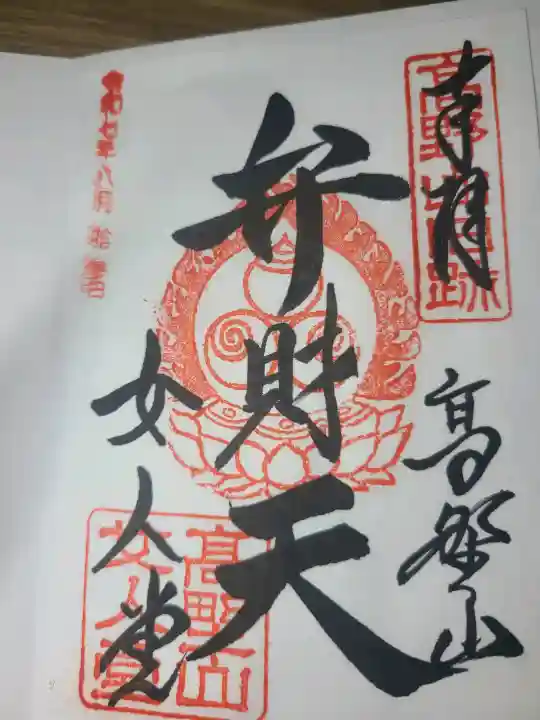 奉拝
高野山霊跡
高野山
弁財天
女人堂
高野山
女人堂
令和七年八月拾